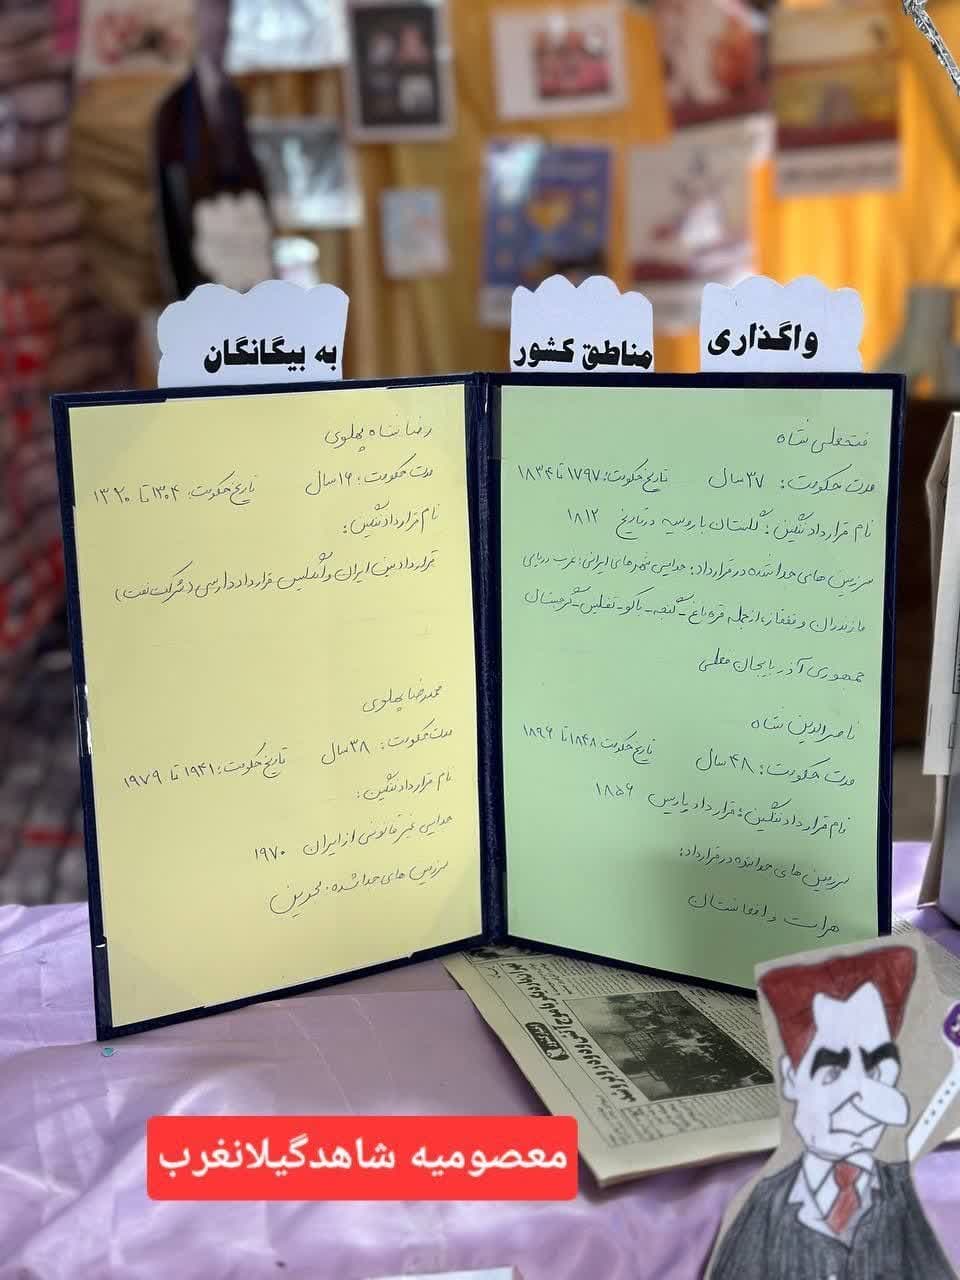 واگذاری مناطق کشور به بیگانگان
فتحعلی شاه
مدت حکومت: ۳۷ سال تاریخ حکومت: ۱۷۹۷ تا ۱۸۳۴
نام قرارداد ننگین: گلستان با روسیه در تاریخ ۱۸۱۲
سرزمین های جدا شده در قرارداد: جدایی شهرهای ایرانی: غرب دریای
مازندران و قفقاز، از جمله قره باغ - گنجه - باکو - تفلیس - گرجستان
جمهوری آذربایجان فعلی
ناصرالدین شاه
مدت حکومت: ۴۸ سال تاریخ حکومت ۱۸۴۸ تا ۱۸۹۶
نام قرارداد ننگین: قرارداد پاریس ۱۸۵۶
سرزمین های جدا شده در قرارداد:
هرات و افغانستان
رضا شاه پهلوی
مدت حکومت: ۱۶ سال تاریخ حکومت: ۱۳۰۴ تا ۱۳۲۰
نام قرارداد ننگین:
قرارداد بین ایران و انگلیس قرارداد دارسی (شرکت نفت)
محمدرضا پهلوی
مدت حکومت: ۳۸ سال تاریخ حکومت: ۱۹۴۱ تا ۱۹۷۹
نام قرارداد ننگین:
جدایی غیر قانونی از ایران ۱۹۷۰
سرزمین های جدا شده: بحرین
معصومیه شاهدگیلانغرب